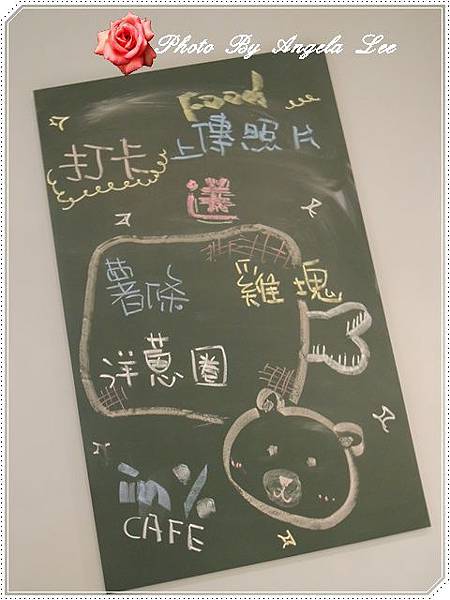 Photo By Angela Lee
Food
打卡 上傳照片
送
薯條 雞塊
洋蔥圈
in%
CAFE